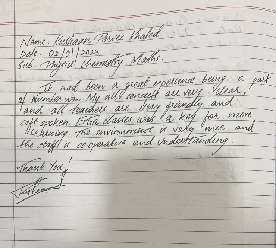 Name: Khaled
Date: 02/21/2022
Sub: Physics Chemistry Maths.
It had been a great experience being a part
of My all concept are very clear,
and all teachers are very friendly and
soft spoken. Extra classes was a key for more
learning. The environment is very nice and
the staff is co-operative and understanding
Thank You!